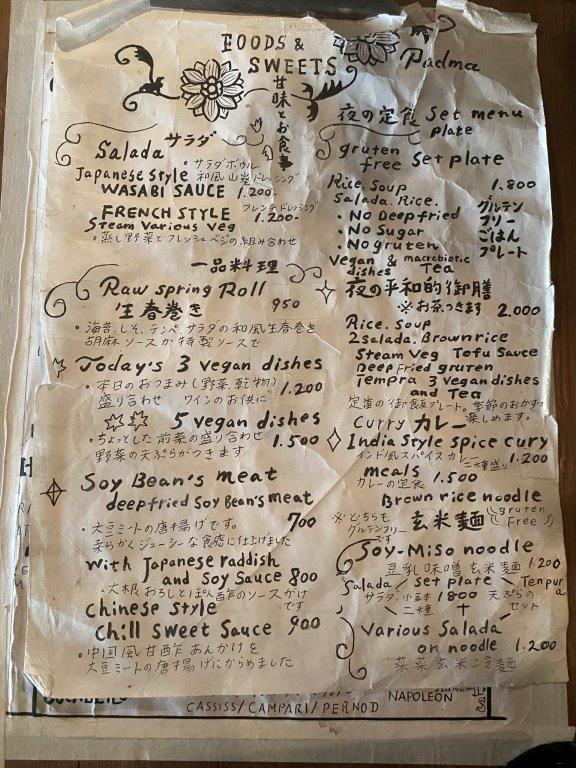 FOODS &
SWEETS
甘味とお食事
Padma
サラダ
Salada
・サラダボウル
Japanese style 和風山葵ドレッシング
WASABI SAUCE 1.200-
FRENCH STYLE フレンチドレッシング
1.200-
Steam Various Veg
・蒸し野菜とフレッシュベジの組み合わせ
一品料理
Raw spring Roll
生春巻き 950
・海苔、しそ、テンペ、サラダの和風生春巻き
胡麻ソースか特製ソースで
Today's 3 vegan dishes
・本日のおつまみ(野菜、乾物)
盛り合わせ ワインのお供に 1.200
5 vegan dishes
・ちょっとした前菜の盛り合わせ
野菜の天ぷらがつきます 1.500
Soy Bean's meat
deepfried Soy Bean's meat
・大豆ミートの唐揚げです。 700
柔らかくジューシーな食感に仕上げました
With Japanese raddish
and Soy Sauce 800
・大根おろしとぽん酢のソースがけ
です
Chinese Style
Chill Sweet Sauce 900
・中国風甘酢あんかけを
大豆ミートの唐揚げにからめました
夜の定食 Set menu
plate
gruten
free Set plate
Rice. Soup 1.800
Salada. Rice.
・No Deepfried
・No Sugar
・No gruten
グルテン
フリー
ごはん
プレート
Vegan & macrebiotic
dishes Tea
夜の平和的御膳
※お茶つきます
2.000
Rice. Soup
2salada. Brownrice
Steam Veg Tofu Sauce
Deepfried gruten
Tempra 3 vegandishes
and Tea
定番の御飯プレート。季節のおかずが
楽しめます。
Curry カレー
India Style spice cury
インド風スパイスカレー 二種盛り 1.200
meals 1.500
カレーの定食
Brown rice noodle
※どちらも
グルテンフリー
です
玄米麺 (gruten
Free)
Soy-Miso noodle
豆乳味噌玄米麺 1.200
Salada / Set plate Tenpura
サラダ 1800 天ぷらの
二種 + セット
Various Salada
on noodle 1.200
菜菜玄米冷麺
NAPOLEON
CASSISS/CAMPARI/PERNOD